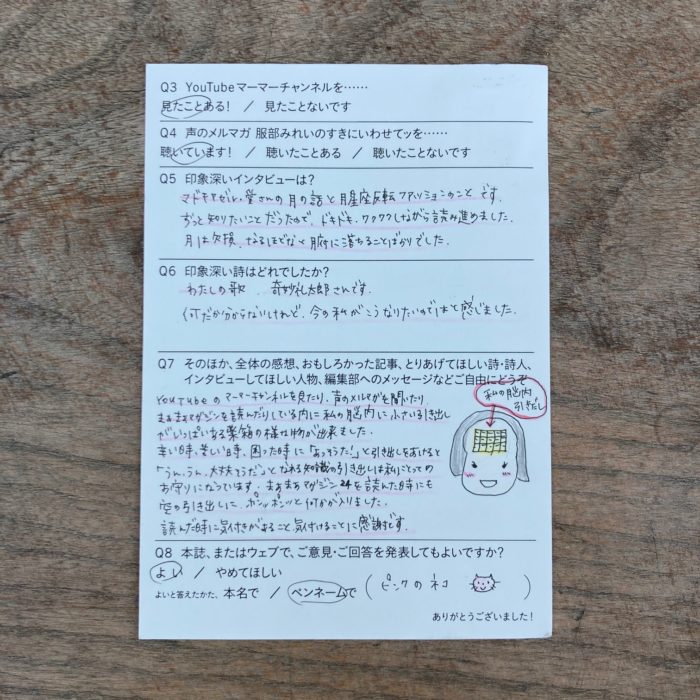 Q3 YouTubeマーマーチャンネルを……
見たことある! / 見たことないです
Q4 声のメルマガ 服部みれいのすきにいわせてッを……
聴いています! / 聴いたことある / 聴いたことないです
Q5 印象深いインタビューは?
マドモアゼル・愛さんの月の話と月星座反転ファッションのこと です。
ずっと知りたいことだったので、ドキドキ、ワクワクしながら読み進めました。
月は欠損、なるほどなく腑に落ちることばかりでした。
Q6 印象深い詩はどれでしたか?
わたしの歌 奇妙礼太郎さんです。
何だか分からないけれど、今の私がこうなりたいので! と感じました。
Q7 そのほか、全体の感想、おもしろかった記事、とりあげてほしい詩・詩人、
インタビューしてほしい人物、編集部へのメッセージなどご自由にどうぞ
YouTubeのマーマーチャンネルを見たり、声のメルマガを聞いたり、
まぁまぁマガジンを読んだりしている内に私の脳内に小さい引き出し
がいっぱいある薬箱の様な物が出来ました。
辛い時、苦しい時、困った時に「あっそうだ!」と引き出しをあけると
「うん、うん、大丈夫そうだ」となれる知識の引き出しは私にとっての
お守りになっています。まぁまぁマガジン24を読んだ時にも
空の引き出しに、ポンッポンッと何かが入りました。
読んだ時に気付きがあること、気付けることに感謝です。
私の脳内
引きだし
Q8 本誌、またはウェブで、ご意見・ご回答を発表してもよいですか?
よい / やめてほしい
よいと答えたかた、本名で / ペンネームで ( ピンクのネコ )
ありがとうございました!